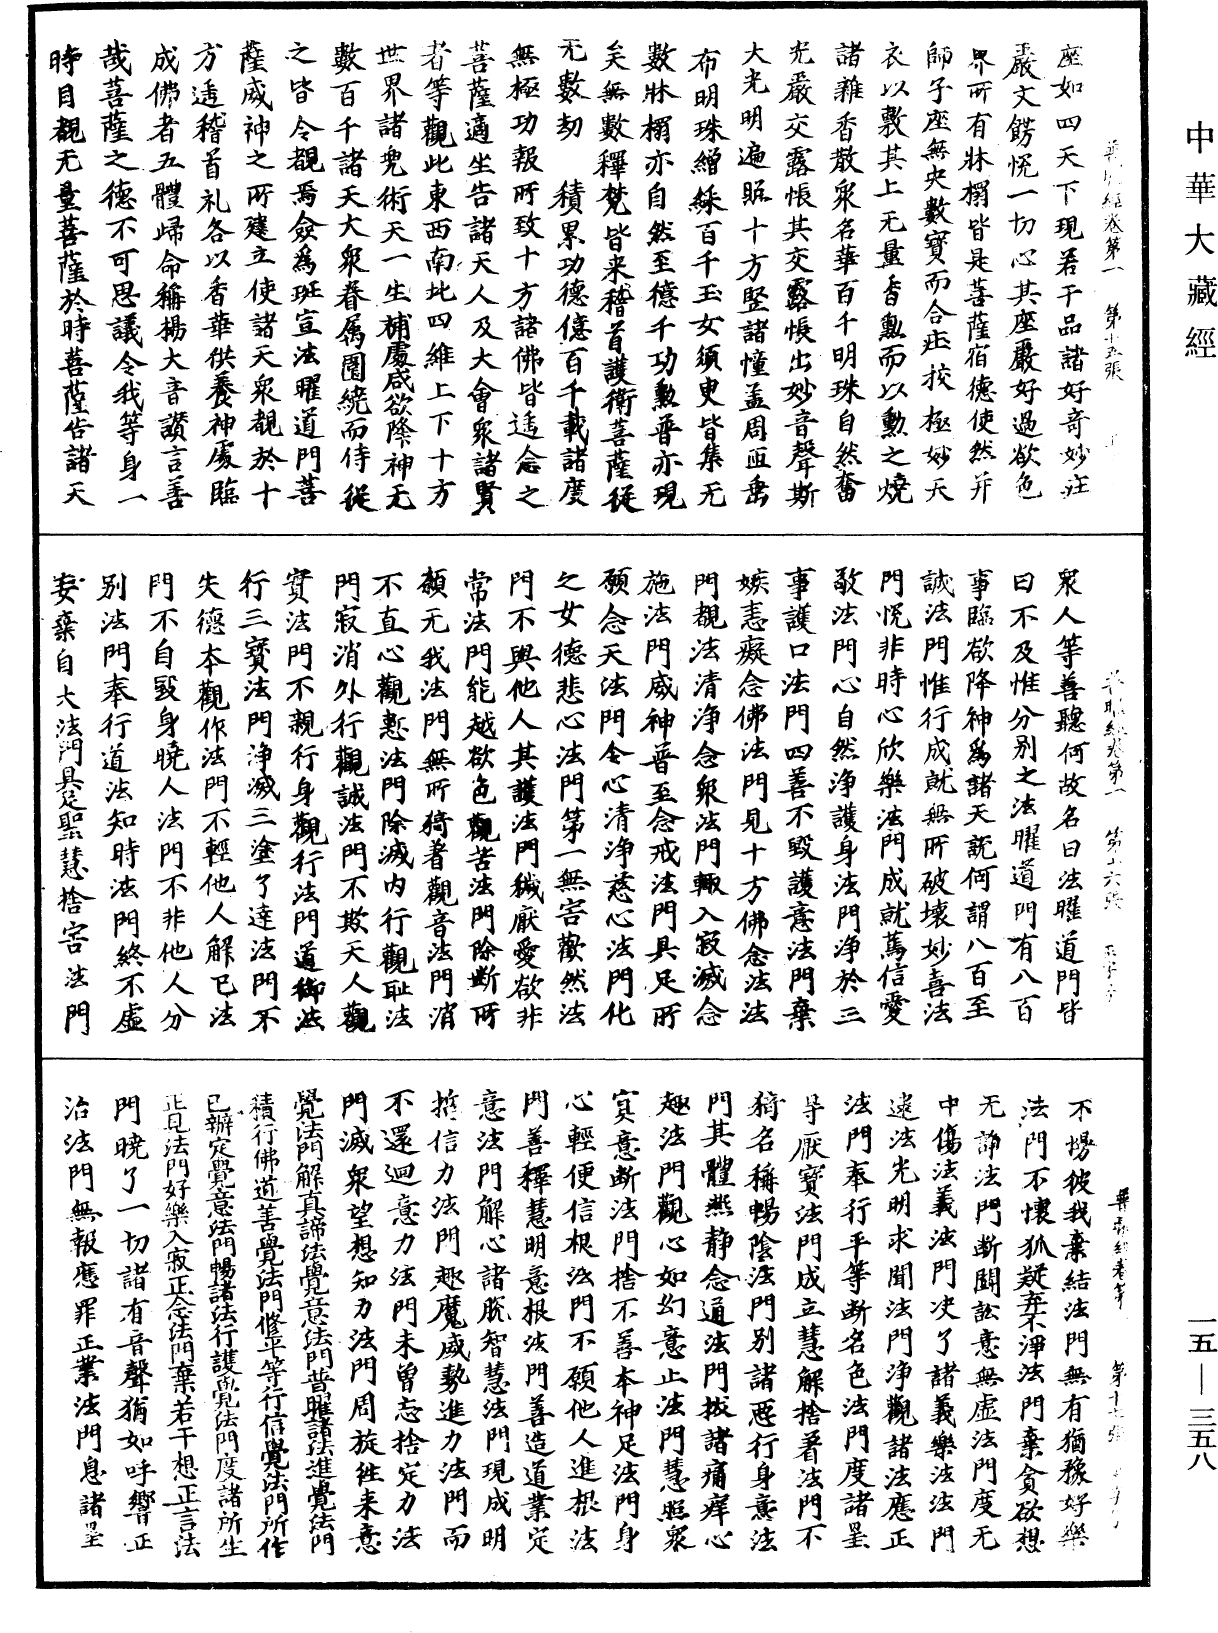 中華大藏經
座如四天下現若干品諸好奇妙莊
嚴文餝悅一切心其座嚴好過欲色
界所有牀榻皆是菩薩宿德使然并
師子座無央數寶而合莊挍極妙天
衣以敷其上无量香勳而以勳之燒
諸雜香散衆名華百千明珠自然奮
光嚴交露帳其交露帳出妙音聲斯
大光明遍照十方竪諸幢盖周匝垂
布明珠繒綵百千玉女須臾皆集无
數牀榻亦自然至億千功勳普亦現
矣無數釋梵皆来稽首護衛菩薩從
无數劫積累功德億百千載諸度
無極功報所致十方諸佛皆遙念之
菩薩適坐告諸天人及大會衆諸賢
者等觀此東西南北四維上下十方
世界諸兜術天一生補處咸欲降神无
數百千諸天大衆眷属圍繞而侍從
之皆令覩焉僉為班宣法曜道門菩
薩威神之所建立使諸天衆覩於十
方遙稽首礼各以香華供養神處臨
成佛者五體歸命稱揚大音讃言善
哉菩薩之德不可思議令我等身一
時目覩无量菩薩於時菩薩告諸天
衆人等善聽何故名曰法曜道門皆
曰不及惟分別之法曜道門有八百
事臨欲降神為諸天說何謂八百至
誠法門惟行成就無所破壞妙喜法
門悅非時心欣樂法門成就篤信愛
敬法門心自然淨護身法門淨於三
事護口法門四善不毀護意法門棄
嫉恚癡念佛法門見十方佛念法法
門覩法清淨念衆法門輙入寂滅念
施法門威神普至念戒法門具足所
願念天法門令心清淨慈心法門化
之女德悲心法門第一無害歡然法
門不與他人其護法門穢厭愛欲非
常法門能越欲色觀苦法門除斷所
願无我法門無所猗著觀音法門消
不直心觀慙法門除滅内行觀耻法
門寂消外行觀誠法門不欺天人觀
實法門不親行身觀行法門道御法
行三寶法門淨滅三塗了達法門不
失德本觀作法門不輕他人解已法
門不自毀身曉人法門不非他人分
別法門奉行道法知時法門終不虛
妄棄自大法門具足聖慧捨害法門
不㩌彼我棄結法門無有猶豫好樂
法門不懷狐疑弃不淨法門棄貪欲想
无諍法門斷鬪訟意無虛法門度无
中傷法義法門決了諸義樂法門
逮法光明求聞法門淨觀諸法應正
法門奉行平等斷名色法門度諸罣
导厭寶法門成立慧解捨著法門不
猗名稱暢陰法門別諸惡行身意法
門其體燕静念通法門拔諸痛痒心
趣法門觀心如幻意止法門慧照衆
寘意斷法門捨不善本神足法門身
心輕便信根法門不願他人進根法
門善釋慧明意根法門善造道業定
意法門解心諸脫智慧法門現成明
哲信力法門趣魔威勢進力法門而
不還迴意力法門未曾忘捨定力法
門滅衆望想知力法門周旋往来意
覺法門解真諦法覺意法門普曜諸法進覺法門
積行佛道善覺法門修平等行信覺法門所作
已辦定覺意法門暢諸法行護覺法門度諸所生
正見法門好樂入寂正念法門棄若干想正言法
門曉了一切諸有音聲猶如呼響正
治法門無報應罪正業法門息諸罣
一五—三五八